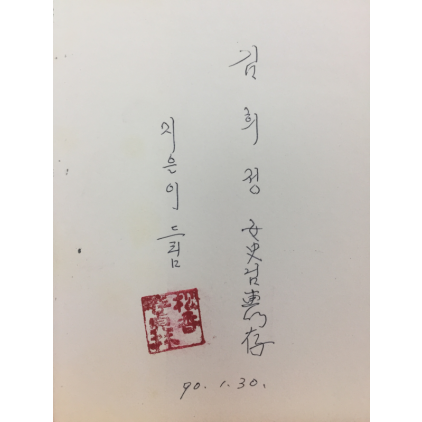 김 희 정 女史님 惠存
지은이 드림
松香
90. 1. 30.